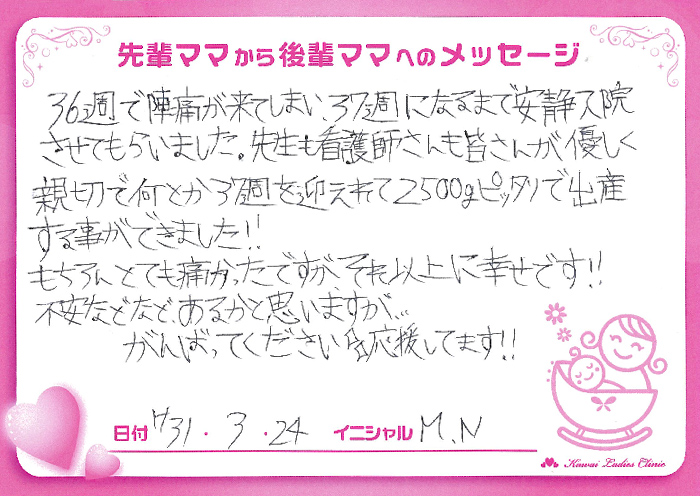 先輩ママから後輩ママへのメッセージ
36週で陣痛が来てしまい、37週になるまで安静入院
させてもらいました。先生も看護師さんも皆さんが優しく
親切で何とか37週を迎えれて2500gピッタリで出産
する事ができました!!
もちろんとても痛かったですが、それ以上に幸せです!!
不安などなど、あるかと思いますが、、、
がんばってください 応援してます!!
日付 H31・3・24 イニシャル M.N
Kawai Ladies Clinic